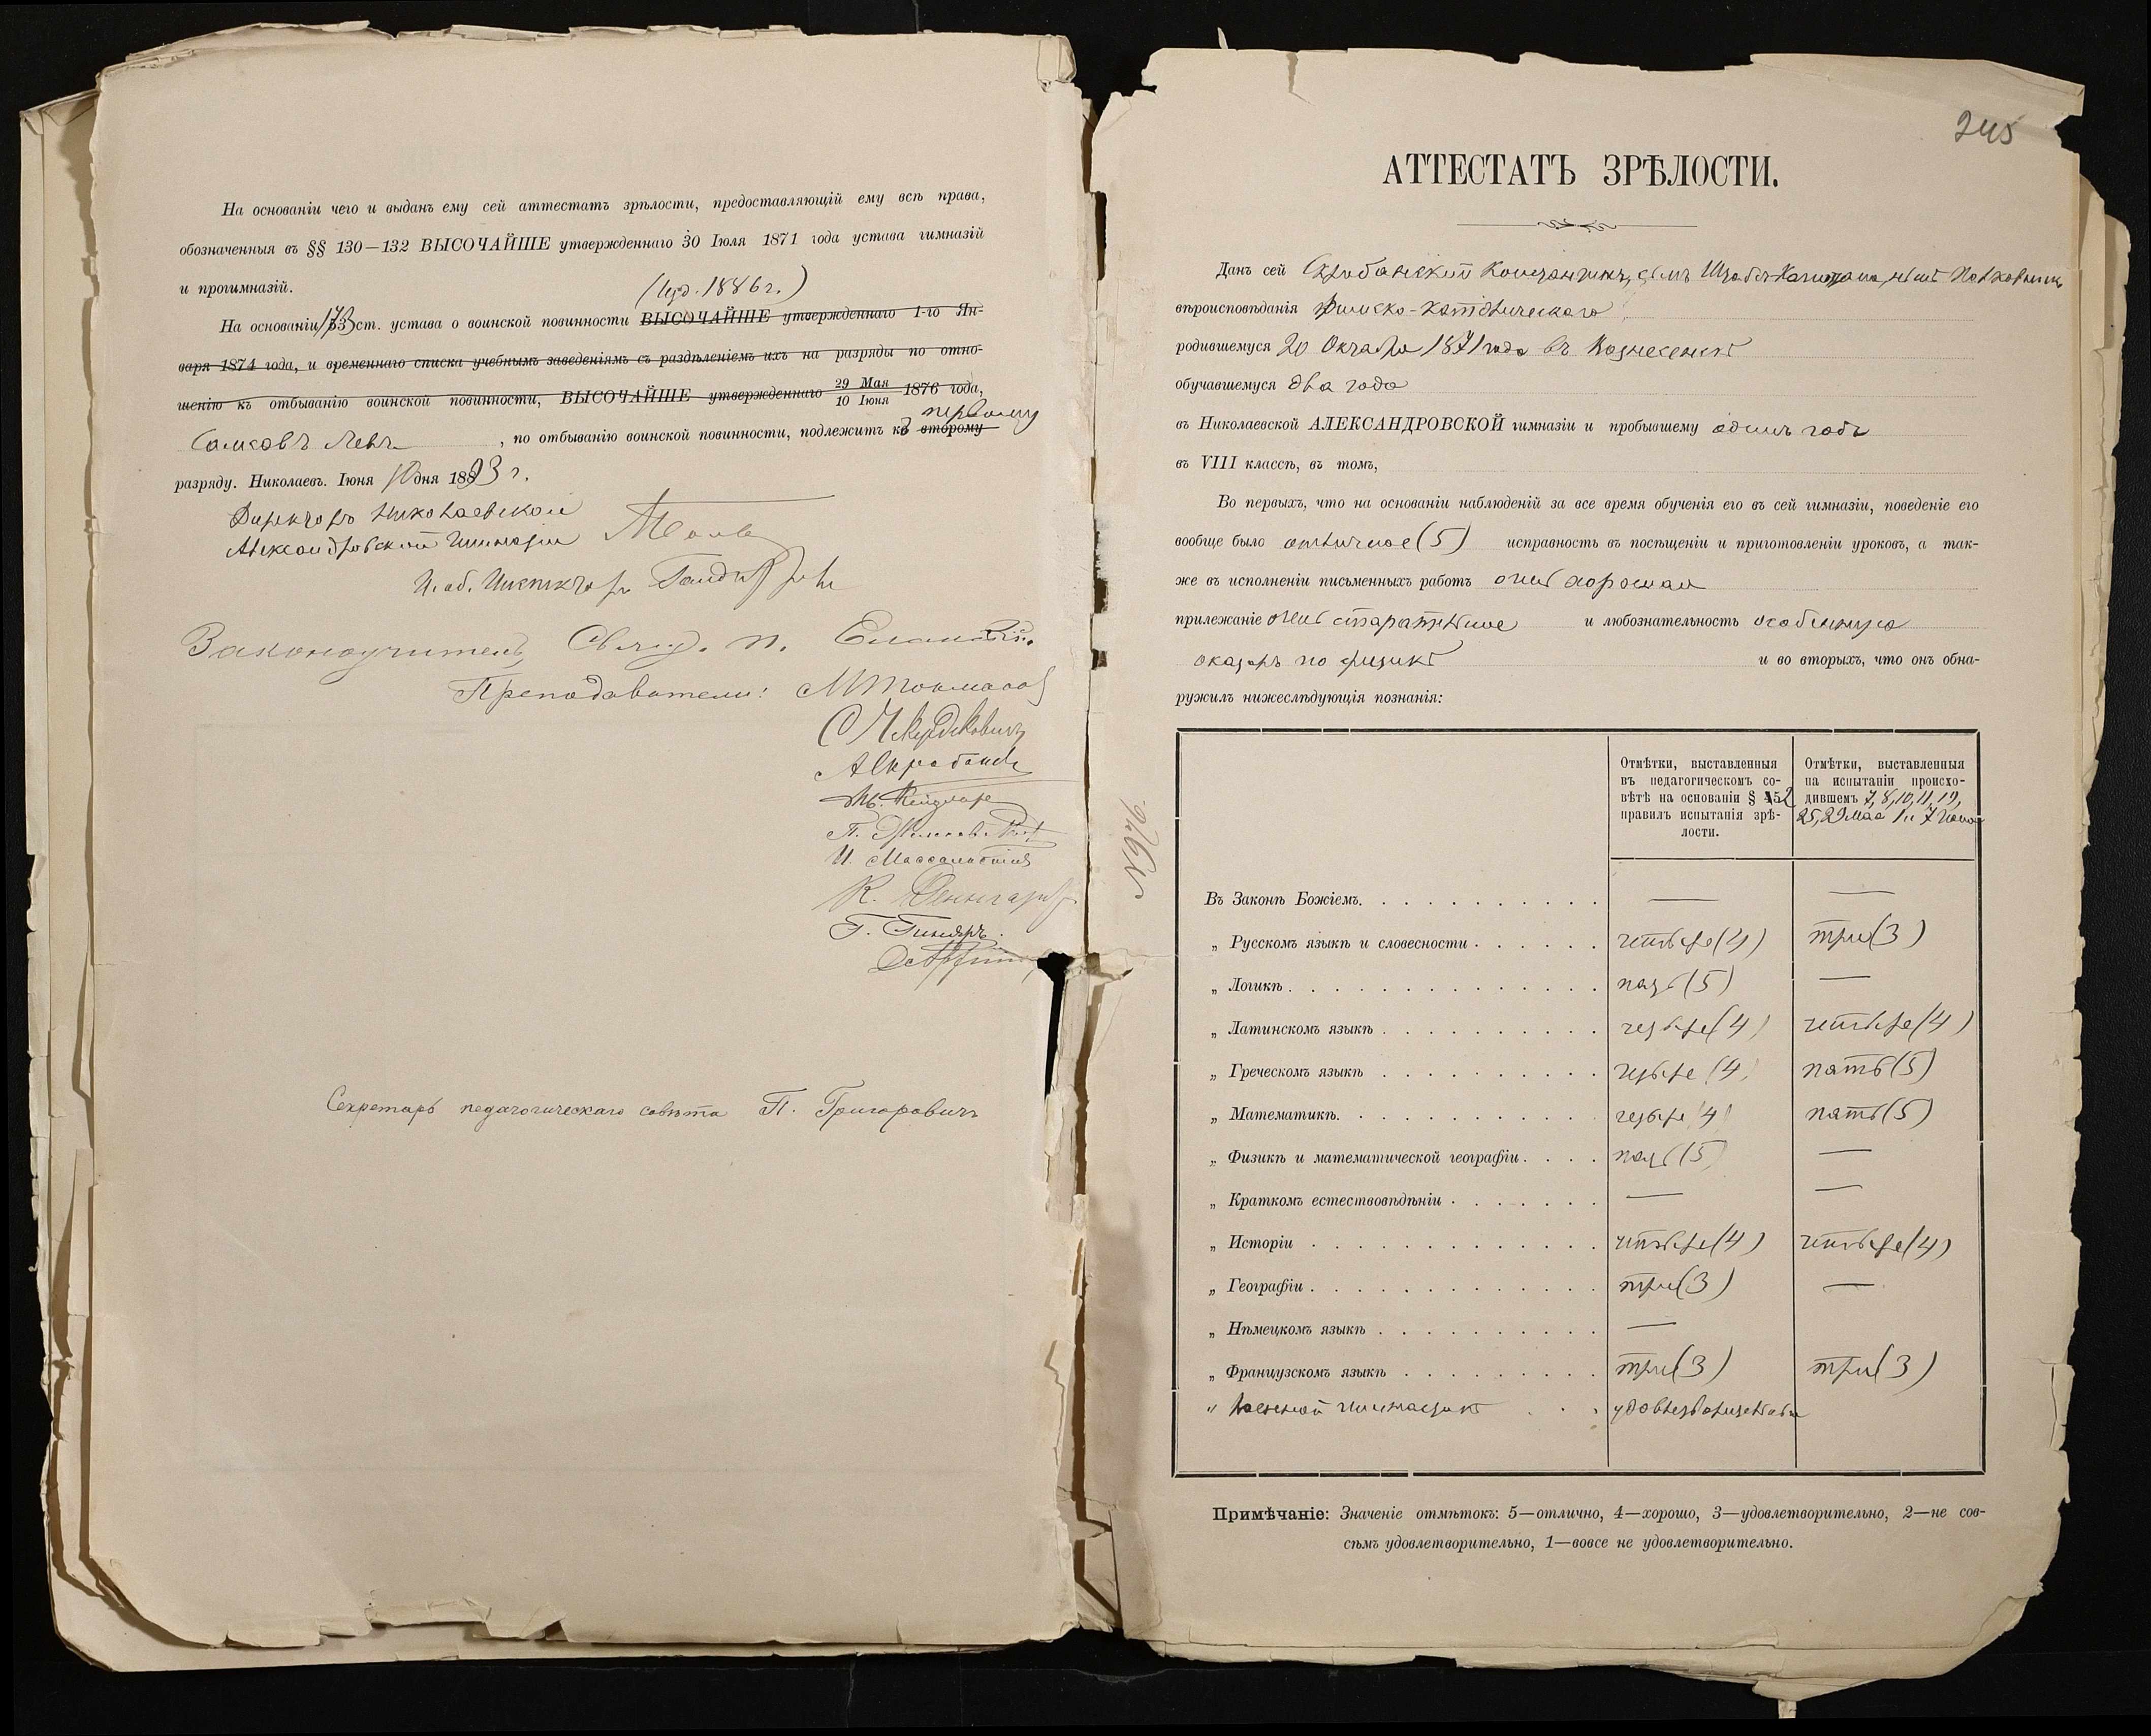 На основаніи чего и выданъ ему сей аттестатъ зрѣлости, предоставляющій ему всѣ права,
обозначенныя въ §§ 130—132 ВЫСОЧАЙШЕ утвержденнаго 30 Іюля 1871 года устава гимназій
и прогимназій.
(изд. 1886 г.)
На основаніи 173 ст. устава о воинской повинности ВЫСОЧАЙШЕ утвержденнаго 1-го Ян-
варя 1874 года, и временнаго списка учебнымъ заведеніямъ съ раздѣленіемъ ихъ на разряды по отно-
шенію къ отбыванію воинской повинности, ВЫСОЧАЙШЕ утвержденнаго 29 Мая 10 Іюня 1876 года,
первому
Самковъ Левъ , по отбыванію воинской повинности, подлежитъ къ второму
разряду. Николаевъ. Іюня 10 дня 1893 г.
Директоръ Николаевской
Александровской Гимназіи
И. об. Инспектора
Законоучитель, Свящ. П.
Преподаватели:
Секретарь педагогическаго совѣта П. Григоровичъ
245
АТТЕСТАТЪ ЗРѢЛОСТИ.
Данъ сей Скробанскій Константинъ, сынъ Штабсъ-Капитана, нынѣ Полковника
вѣроисповѣданія Римско-католическаго
родившемуся 20 Октября 1871 года въ Вознесенскѣ
обучавшемуся два года
въ Николаевской АЛЕКСАНДРОВСКОЙ гимназіи и пробывшему одинъ годъ
въ VIII классѣ, въ томъ,
Во первыхъ, что на основаніи наблюденій за все время обученія его въ сей гимназіи, поведеніе его
вообще было отличное (5) исправность въ посѣщеніи и приготовленіи уроковъ, а так-
же въ исполненіи письменныхъ работъ очень хорошая
прилежаніе очень старательное и любознательность особенную
оказалъ по физикѣ и во вторыхъ, что онъ обна-
ружилъ нижеслѣдующія познанія:
Отмѣтки, выставленныя въ педагогическомъ со-вѣтѣ на основаніи § 52 правилъ испытанія зрѣ-лости.
Отмѣтки, выставленныя на испытаніи происхо-дившемъ 7, 8, 10, 11, 19, 25, 29 Мая 1 и 7 Іюня
№ 676
Въ Законѣ Божіемъ. — —
„ Русскомъ языкѣ и словесности четыре (4) три (3)
„ Логикѣ пять (5) —
„ Латинскомъ языкѣ четыре (4) четыре (4)
„ Греческомъ языкѣ четыре (4) пять (5)
„ Математикѣ. четыре (4) пять (5)
„ Физикѣ и математической географіи. пять (5) —
„ Краткомъ естествовѣдѣніи — —
„ Исторіи четыре (4) четыре (4)
„ Географіи три (3) —
„ Нѣмецкомъ языкѣ —
„ Французскомъ языкѣ три (3) три (3)
„ Военной гимнастикѣ удовлетворительно
Примѣчаніе: Значеніе отмѣтокъ: 5—отлично, 4—хорошо, 3—удовлетворительно, 2—не сов-
сѣмъ удовлетворительно, 1—вовсе не удовлетворительно.